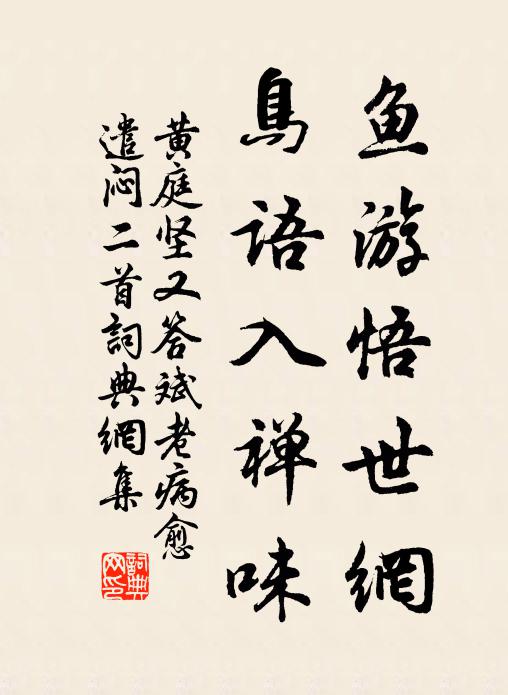 鱼游悟世網
鳥語入禅味
黄庭坚又答斌老病愈
遣闷二首詞典網集
詞典
网印